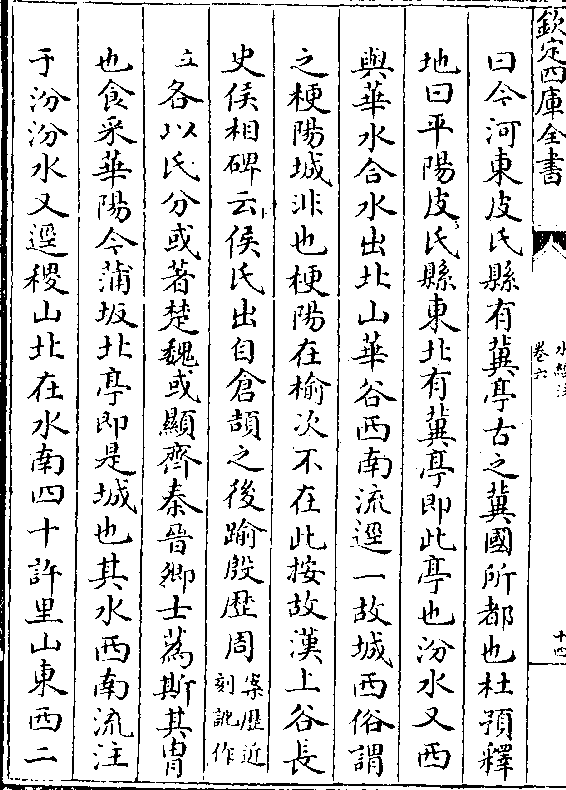 欽定四庫全書
水經注
卷六
十四
曰今河東皮氏縣有冀亭古之冀國所都也杜預釋
地曰平陽皮氏縣東北有冀亭即此亭也汾水又西
與華水合水出北山華谷西南流逕一故城西俗謂
之梗陽城非也梗陽在榆次不在此按故漢上谷長
史侯相碑云侯氏出自倉頡之後踰殷歴周案歴近刻訛作
立各以氏分或著楚魏或顯齊秦晉卿士蒍斯其胄
也食采華陽今蒲坂北亭即是城也其水西南流注
于汾汾水又逕稷山北在水南四十許里山東西二